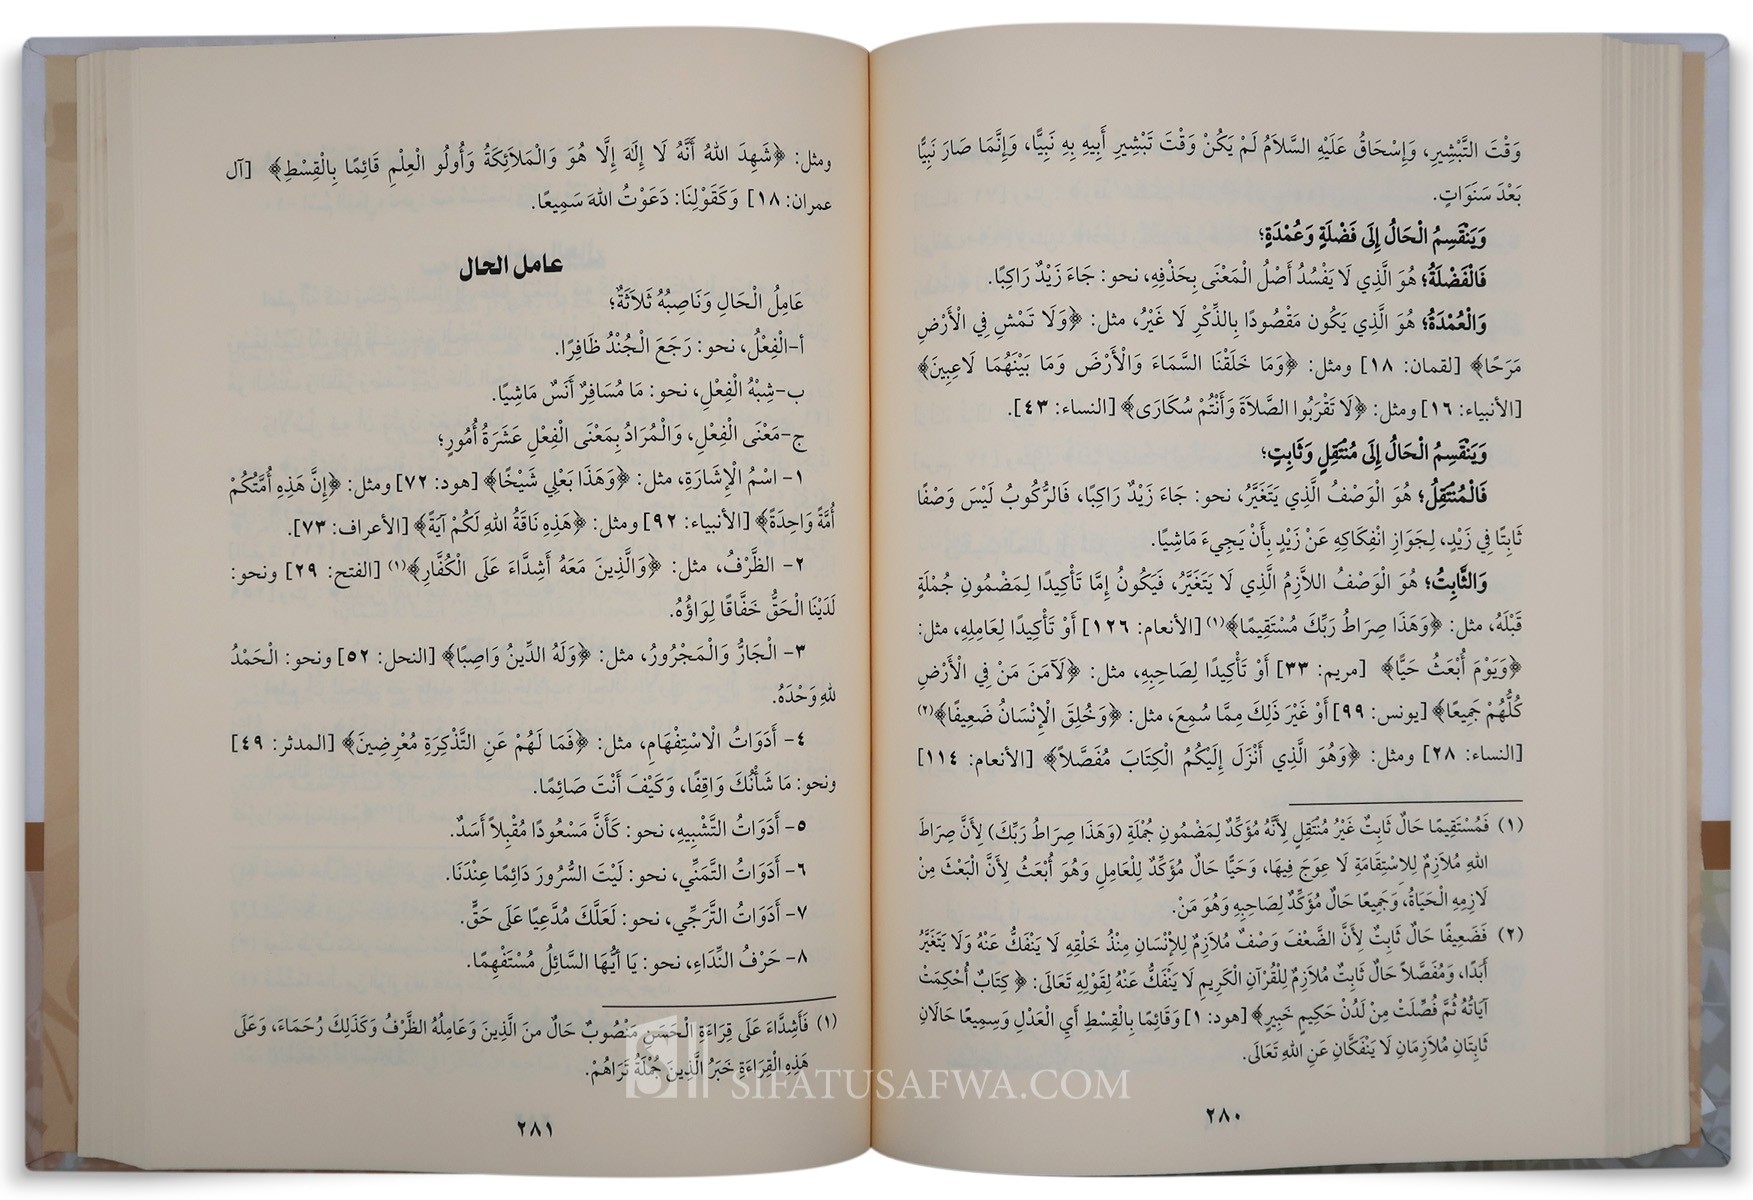 وَقْتَ التَّبْشِيرِ، وَإِسْحَاقُ عَلَيْهِ السَّلَامُ لَمْ يَكُنْ وَقْتَ تَبْشِيرِ أَبِيهِ بِهِ نَبِيًّا، وَإِنَّمَا صَارَ نَبِيًّا
بَعْدَ سَنَوَاتٍ.
وَيَنْقَسِمُ الْحَالُ إِلَى فَضْلَةٍ وَعُمْدَةٍ؛
فَالْفَضْلَةُ؛ هُوَ الَّذِي لَا يَفْسُدُ أَصْلُ الْمَعْنَى بِحَذْفِهِ، نحو: جَاءَ زَيْدٌ رَاكِبًا.
وَالْعُمْدَةُ؛ هُوَ الَّذِي يَكُون مَقْصُودًا بِالذِّكْرِ لَا غَيْرُ، مثل: ﴿وَلَا تَمْشِ فِي الْأَرْضِ
مَرَحًا﴾ [لقمان: ١٨] ومثل: ﴿وَمَا خَلَقْنَا السَّمَاءَ وَالْأَرْضَ وَمَا بَيْنَهُمَا لَاعِبِينَ﴾
[الأنبياء: ١٦] ومثل: ﴿لَا تَقْرَبُوا الصَّلَاةَ وَأَنْتُمْ سُكَارَى﴾ [النساء: ٤٣].
وَيَنْقَسِمُ الْحَالُ إِلَى مُنْتَقِلٍ وَثَابِتٍ؛
فَالْمُنْتَقِلُ؛ هُوَ الْوَصْفُ الَّذِي يَتَغَيَّرُ، نحو: جَاءَ زَيْدٌ رَاكِبًا، فَالرُّكُوبُ لَيْسَ وَصْفًا
ثَابِتًا فِي زَيْدٍ، لِجَوَازِ انْفِكَاكِهِ عَنْ زَيْدٍ بِأَنْ يَجِيءَ مَاشِيًا.
وَالثَّابِتُ؛ هُوَ الْوَصْفُ اللاَّزِمُ الَّذِي لَا يَتَغَيَّرُ، فَيَكُونُ إِمَّا تَأْكِيدًا لِمَضْمُونِ جُمْلَةٍ
قَبْلَهُ، مثل: ﴿وَهَذَا صِرَاطُ رَبِّكَ مُسْتَقِيمًا﴾(١) [الأنعام: ١٢٦] أَوْ تَأْكِيدًا لِعَامِلِهِ، مثل:
﴿وَيَوْمَ أُبْعَثُ حَيًّا﴾ [مريم: ٣٣] أَوْ تَأْكِيدًا لِصَاحِبِهِ، مثل: ﴿لَآمَنَ مَنْ فِي الْأَرْضِ
كُلُّهُمْ جَمِيعًا﴾ [يونس: ٩٩] أَوْ غَيْرَ ذَلِكَ مِمَّا سُمِعَ، مثل: ﴿وَخُلِقَ الْإِنْسَانُ ضَعِيفًا﴾(٢)
[النساء: ٢٨] ومثل: ﴿وَهُوَ الَّذِي أَنْزَلَ إِلَيْكُمُ الْكِتَابَ مُفَصَّلاً﴾ [الأنعام: ١١٤]
(١) فَمُسْتَقِيمًا حَالٌ ثَابِتٌ غَيْرُ مُنْتَقِلٍ لِأَنَّهُ مُؤَكِّدٌ لِمَضْمُونِ جُمْلَةِ (وَهَذَا صِرَاطُ رَبِّكَ) لِأَنَّ صِرَاطَ
اللهِ مُلاَزِمٌ لِلاِسْتِقَامَةِ لَا عِوَجَ فِيهَا، وَحَيًّا حَالٌ مُؤَكِّدٌ لِلْعَامِلِ وَهُوَ أُبْعَثُ لِأَنَّ الْبَعْثَ مِنْ
لَازِمِهِ الْحَيَاةُ، وَجَمِيعًا حَالٌ مُؤَكِّدٌ لِصَاحِبِهِ وَهُوَ مَنْ.
(٢) فَضَعِيفًا حَالٌ ثَابِتٌ لِأَنَّ الضَّعْفَ وَصْفٌ مُلاَزِمٌ لِلإِنْسَانِ مِنْذُ خَلْقِهِ لَا يَنْفَكُّ عَنْهُ وَلَا يَتَغَيَّرُ
أَبَدًا، وَمُفَصَّلاً حَالٌ ثَابِتٌ مُلاَزِمٌ لِلْقُرْآنِ الْكَرِيمِ لَا يَنْفَكُّ عَنْهُ لِقَوْلِهِ تَعَالَى: ﴿كِتَابٌ أُحْكِمَتْ
آيَاتُهُ ثُمَّ فُصِّلَتْ مِنْ لَدُنْ حَكِيمٍ خَبِيرٍ﴾ [هود: ١] وَقَائِمًا بِالْقِسْطِ أَيِ الْعَدْلِ وَسَمِيعًا حَالَانِ
ثَابِتَانِ مُلاَزِمَانِ لَا يَنْفَكَّانِ عَنِ اللهِ تَعَالَى.
٢٨٠
ومثل: ﴿شَهِدَ اللهُ أَنَّهُ لَا إِلَهَ إِلَّا هُوَ وَالْمَلاَئِكَةُ وَأُولُو الْعِلْمِ قَائِمًا بِالْقِسْطِ﴾ [آل
عمران: ١٨] وَكَقَوْلِنَا: دَعَوْتُ اللهَ سَمِيعًا.
عامل الحال
عَامِلُ الْحَالِ وَنَاصِبُهُ ثَلاَثَةٌ؛
أ-الْفِعْلُ، نحو: رَجَعَ الْجُنْدُ ظَافِرًا.
ب-شِبْهُ الْفِعْلِ، نحو: مَا مُسَافِرٌ أَنَسٌ مَاشِيًا.
ج-مَعْنَى الْفِعْلِ، وَالْمُرَادُ بِمَعْنَى الْفِعْلِ عَشَرَةُ أُمُورٍ؛
١- اسْمُ الْإِشَارَةِ، مثل: ﴿وَهَذَا بَعْلِي شَيْخًا﴾ [هود: ٧٢] ومثل: ﴿إِنَّ هَذِهِ أُمَّتُكُمْ
أُمَّةً وَاحِدَةً﴾ [الأنبياء: ٩٢] ومثل: ﴿هَذِهِ نَاقَةُ اللهِ لَكُمْ آيَةً﴾ [الأعراف: ٧٣].
٢- الظَّرْفُ، مثل: ﴿وَالَّذِينَ مَعَهُ أَشِدَّاءَ عَلَى الْكُفَّارِ﴾(١) [الفتح: ٢٩] ونحو:
لَدَيْنَا الْحَقُّ خَفَّاقًا لِوَاؤُهُ.
٣- الْجَارُّ وَالْمَجْرُورُ، مثل: ﴿وَلَهُ الدِّينُ وَاصِبًا﴾ [النحل: ٥٢] ونحو: الْحَمْدُ
للهِ وَحْدَهُ.
٤- أَدَوَاتُ الْاسْتِفْهَامِ، مثل: ﴿فَمَا لَهُمْ عَنِ التَّذْكِرَةِ مُعْرِضِينَ﴾ [المدثر: ٤٩]
ونحو: مَا شَأْنُكَ وَاقِفًا، وَكَيْفَ أَنْتَ صَائِمًا.
٥- أَدَوَاتُ التَّشْبِيهِ، نحو: كَأَنَّ مَسْعُودًا مُقْبِلاً أَسَدٌ.
٦- أَدَوَاتُ التَّمَنِّي، نحو: لَيْتَ السُّرُورَ دَائِمًا عِنْدَنَا.
٧- أَدَوَاتُ التَّرَجِّي، نحو: لَعَلَّكَ مُدَّعِيًا عَلَى حَقٍّ.
٨- حَرْفُ النِّدَاءِ، نحو: يَا أَيُّهَا السَّائِلُ مُسْتَفْهِمًا.
(١) فَأَشِدَّاءَ عَلَى قِرَاءَةِ الْحَسَنِ مَنْصُوبٌ حَالٌ منَ الَّذِينَ وَعَامِلُهُ الظَّرْفُ وَكَذَلِكَ رُحَمَاءَ، وَعَلَى
هَذِهِ الْقِرَاءَةِ خَبَرُ الَّذِينَ جُمْلَةُ تَرَاهُمْ.
٢٨١
SIFATUSAFWA.COM